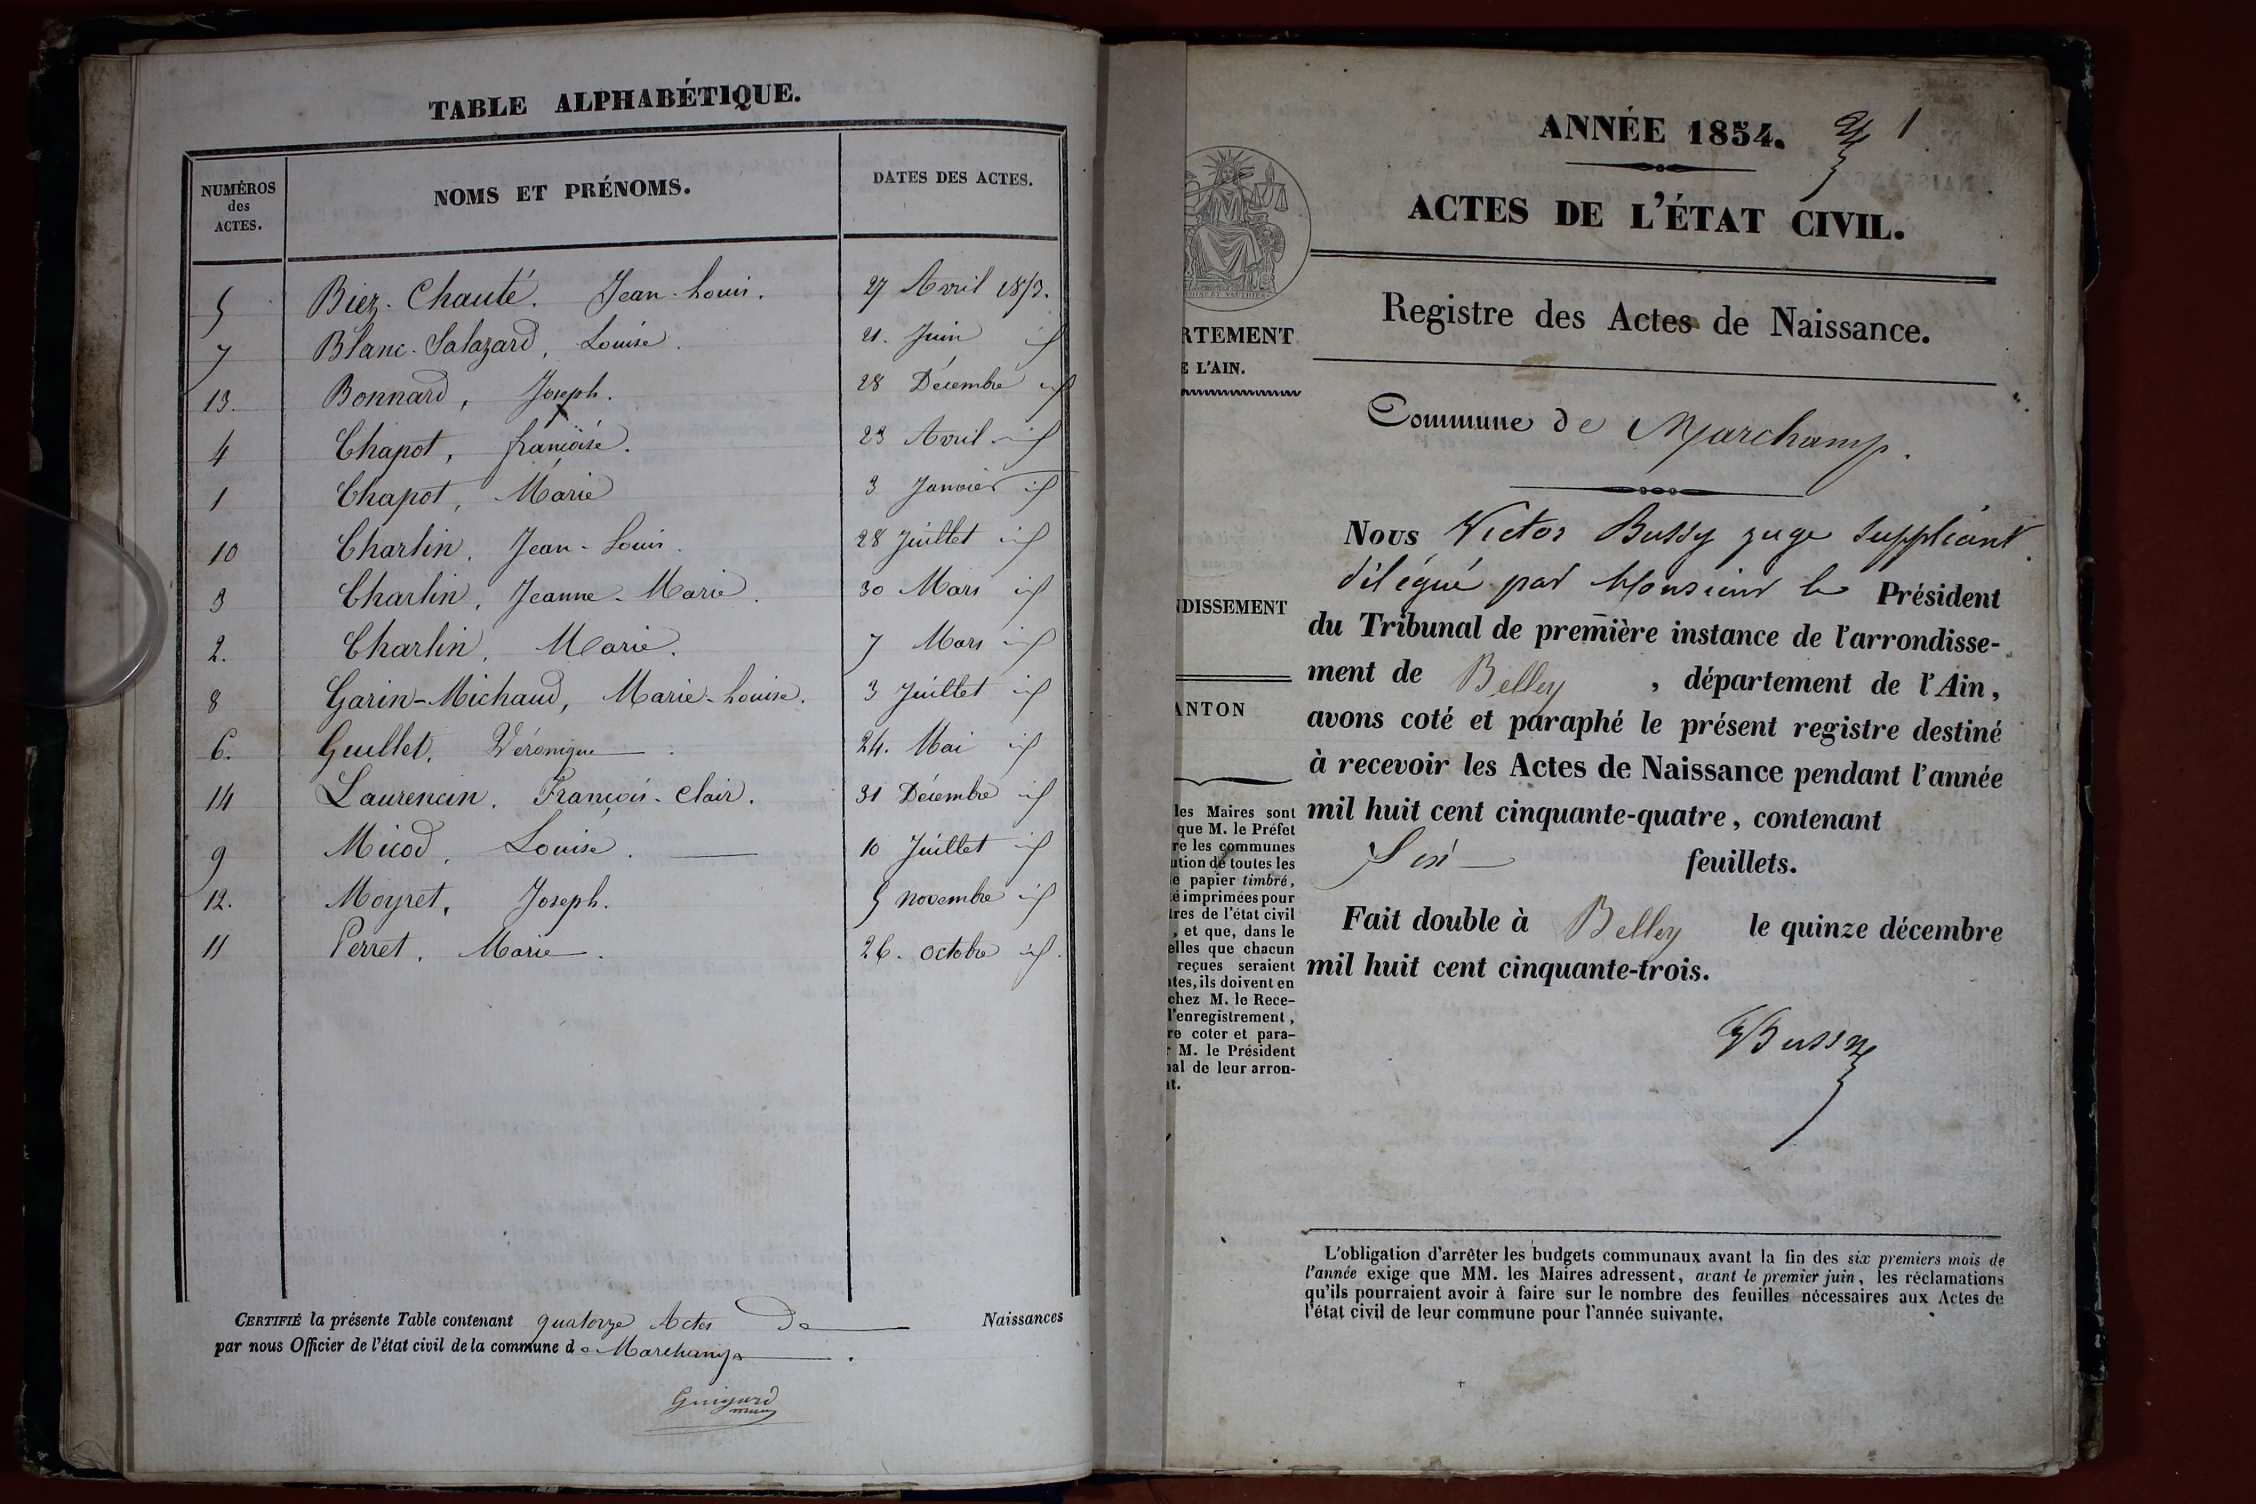 TABLE ALPHABÉTIQUE.
NUMÉROS des ACTES. NOMS ET PRÉNOMS. DATES DES ACTES.
5 Biez-Chauté. Jean-Louis. 27 Avril 1853.
7 Blanc-Salazard, Louise. 21. Juin id
13. Bonnard, Joseph. 28 Décembre id
4 Chapot, françoise. 23 Avril id
1 Chapot, Marie 3 Janvier id
10 Charlin, Jean-Louis. 28 Juillet id
3 Charlin, Jeanne-Marie. 30 Mars id
2. Charlin, Marie. 7 Mars id
8 Garin-Michaud, Marie-Louise. 3 Juillet id
6. Guillet, Véronique. 24. Mai id
14 Laurencin, François-Clair. 31 Décembre id
9 Micod, Louise. 10 Juillet id
12. Moyret, Joseph. 5 novembre id
11 Perret, Marie. 26. octobre id.
CERTIFIÉ la présente Table contenant quatorze Actes de Naissances
par nous Officier de l'état civil de la commune de Marchamp.
Guigard
maire
ANNÉE 1854. 1
ACTES DE L'ÉTAT CIVIL.
Registre des Actes de Naissance.
Commune de Marchamp.
Nous Victor Bussy juge suppléant
délégué par Monsieur le Président
du Tribunal de première instance de l'arrondisse-
ment de Belley, département de l'Ain,
avons coté et paraphé le présent registre destiné
à recevoir les Actes de Naissance pendant l'année
mil huit cent cinquante-quatre, contenant
Six feuillets.
Fait double à Belley le quinze décembre
mil huit cent cinquante-trois.
VBussy
L'obligation d'arrêter les budgets communaux avant la fin des six premiers mois de
l'année exige que MM. les Maires adressent, avant le premier juin, les réclamations
qu'ils pourraient avoir à faire sur le nombre des feuilles nécessaires aux Actes de
l'état civil de leur commune pour l'année suivante.
RTEMENT
E L'AIN.
NDISSEMENT
ANTON
les Maires sont
que M. le Préfet
re les communes
ution de toutes les
e papier timbré,
é imprimées pour
tres de l'état civil
, et que, dans le
elles que chacun
reçues seraient
ntes, ils doivent en
chez M. le Rece-
l'enregistrement,
re coter et para-
r M. le Président
nal de leur arron-
nt.